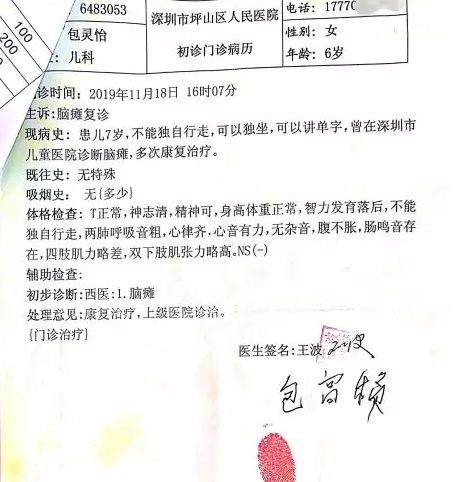 100
200
6483053
包灵怡
：儿科
深圳市坪山区人民医院
初诊门诊病历
电话：1777
性别：女
年龄：6岁
诊时间：2019年11月18日 16时07分
主诉:脑瘫复诊
现病史：患儿7岁,不能独自行走,可以独坐,可以讲单字,曾在深圳市
儿童医院诊断脑瘫,多次康复治疗。
既往史：无特殊
吸烟史： 无{多少}
体格检查：T正常,神志清,精神可,身高体重正常,智力发育落后,不能
独自行走,两肺呼吸音粗,心律齐,心音有力,无杂音,腹不胀,肠鸣音存
在,四肢肌力略差,双下肢肌张力略高。NS(-)
辅助检查:
初步诊断:西医:1.脑瘫
处理意见:康复治疗,上级医院诊治。
{门诊治疗}
医生签名:王波
包富